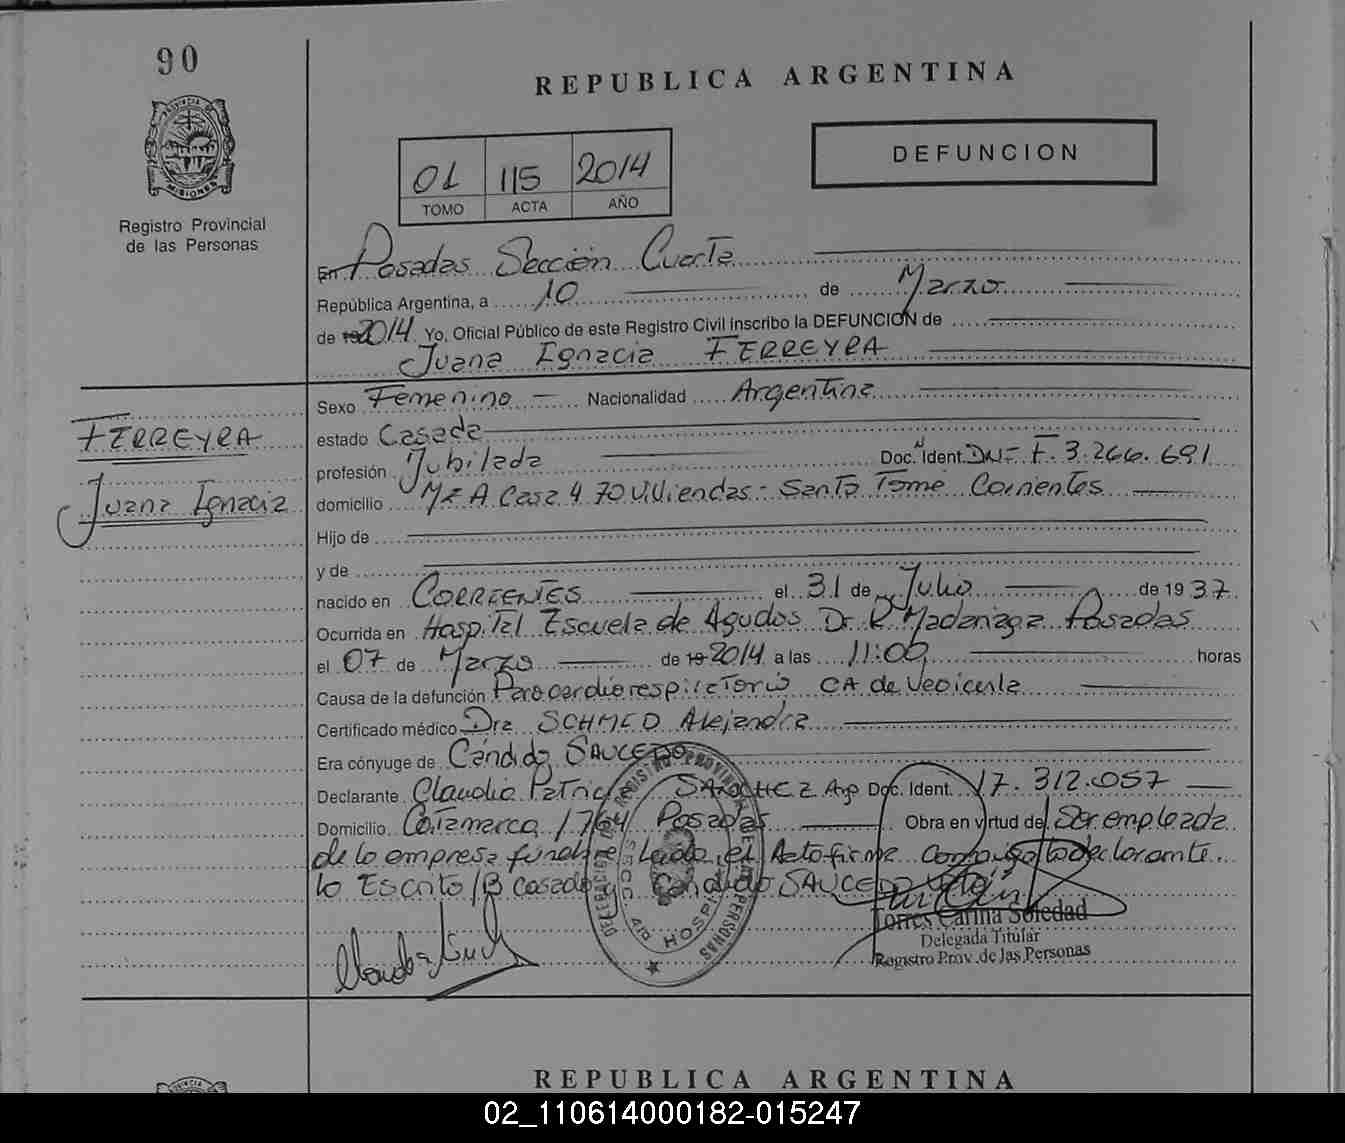 90
REPUBLICA ARGENTINA
PROVINCIA DE MISIONES
Registro Provincial
de las Personas
01 115 2014
TOMO ACTA AÑO
DEFUNCION
En Posadas Sección Cuarta
República Argentina, a 10 de Marzo
de 192014 Yo, Oficial Público de este Registro Civil inscribo la DEFUNCION de
Juana Ignacia FERREYRA
FERREYRA
Juana Ignacia
Sexo Femenino Nacionalidad Argentina
estado Casada
profesión Jubilada Doc. Ident. DNI F. 3.266.691
domicilio Mz A Casa 4 70 Viviendas - Santo Tome Corrientes
Hijo de
y de
nacido en CORRIENTES el 31 de Julio de 1937
Ocurrida en Hospital Escuela de Agudos Dr R Madariaga Posadas
el 07 de Marzo de 19 2014 a las 11:00 horas
Causa de la defunción Parocardiorespiratorio CA de Vecicula
Certificado médico Dra SCHMED Alejandra
Era cónyuge de Cándido SAUCEDO
Declarante Claudia Patricia SANCHEZ Arg Doc. Ident. 17.312.057
Domicilio Catamarca 1764 Posadas Obra en virtud de Ser empleada
de la empresa funebre Leida el Acta firma conmigo la declarante.
lo Escrito /B casada y Candido SAUCEDO
Torres Carina Soledad
Delegada Titular
Registro Prov. de las Personas
REPUBLICA ARGENTINA
02_110614000182-015247